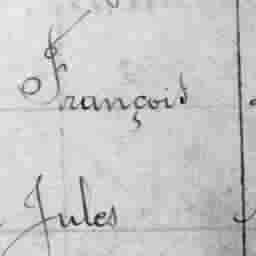 François
Jules